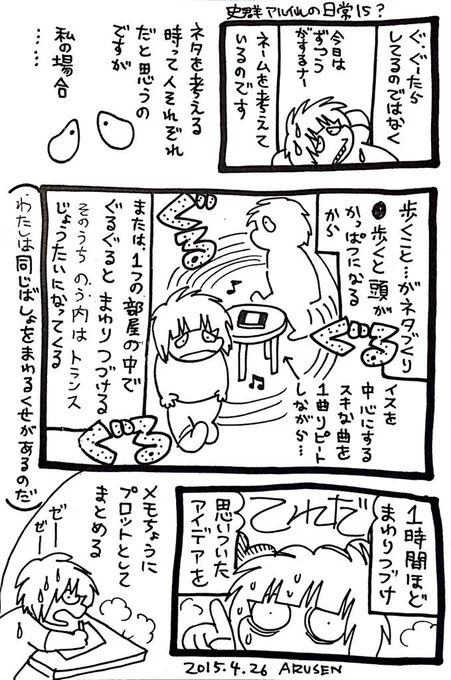 史群アルセンの日常15?
ぐ・ぐーたら
してるのではなく
今日は
ずつう
がするナー
ネームを考えて
いるのです
ネタを考える
時って人それぞれ
だと思うの
ですが
私の場合
……
歩くこと…がネタづくり
歩くと頭が
かっぱつになる
から
ぐる
ぐる
ぐる
イスを
中心にする
スキな曲を
1曲リピート
しながら…
または、1つの部屋の中で
ぐるぐるとまわりつづける
そのうちのう内はトランス
じょうたいになってくる
わたしは同じばしょをまわるくせがあるのだ
1時間ほど
まわりつづけ
これだ
思いついた
アイデアを
メモちょうに
プロットとして
まとめる
ゼー
ゼー
2015.4.26 ARUSEN